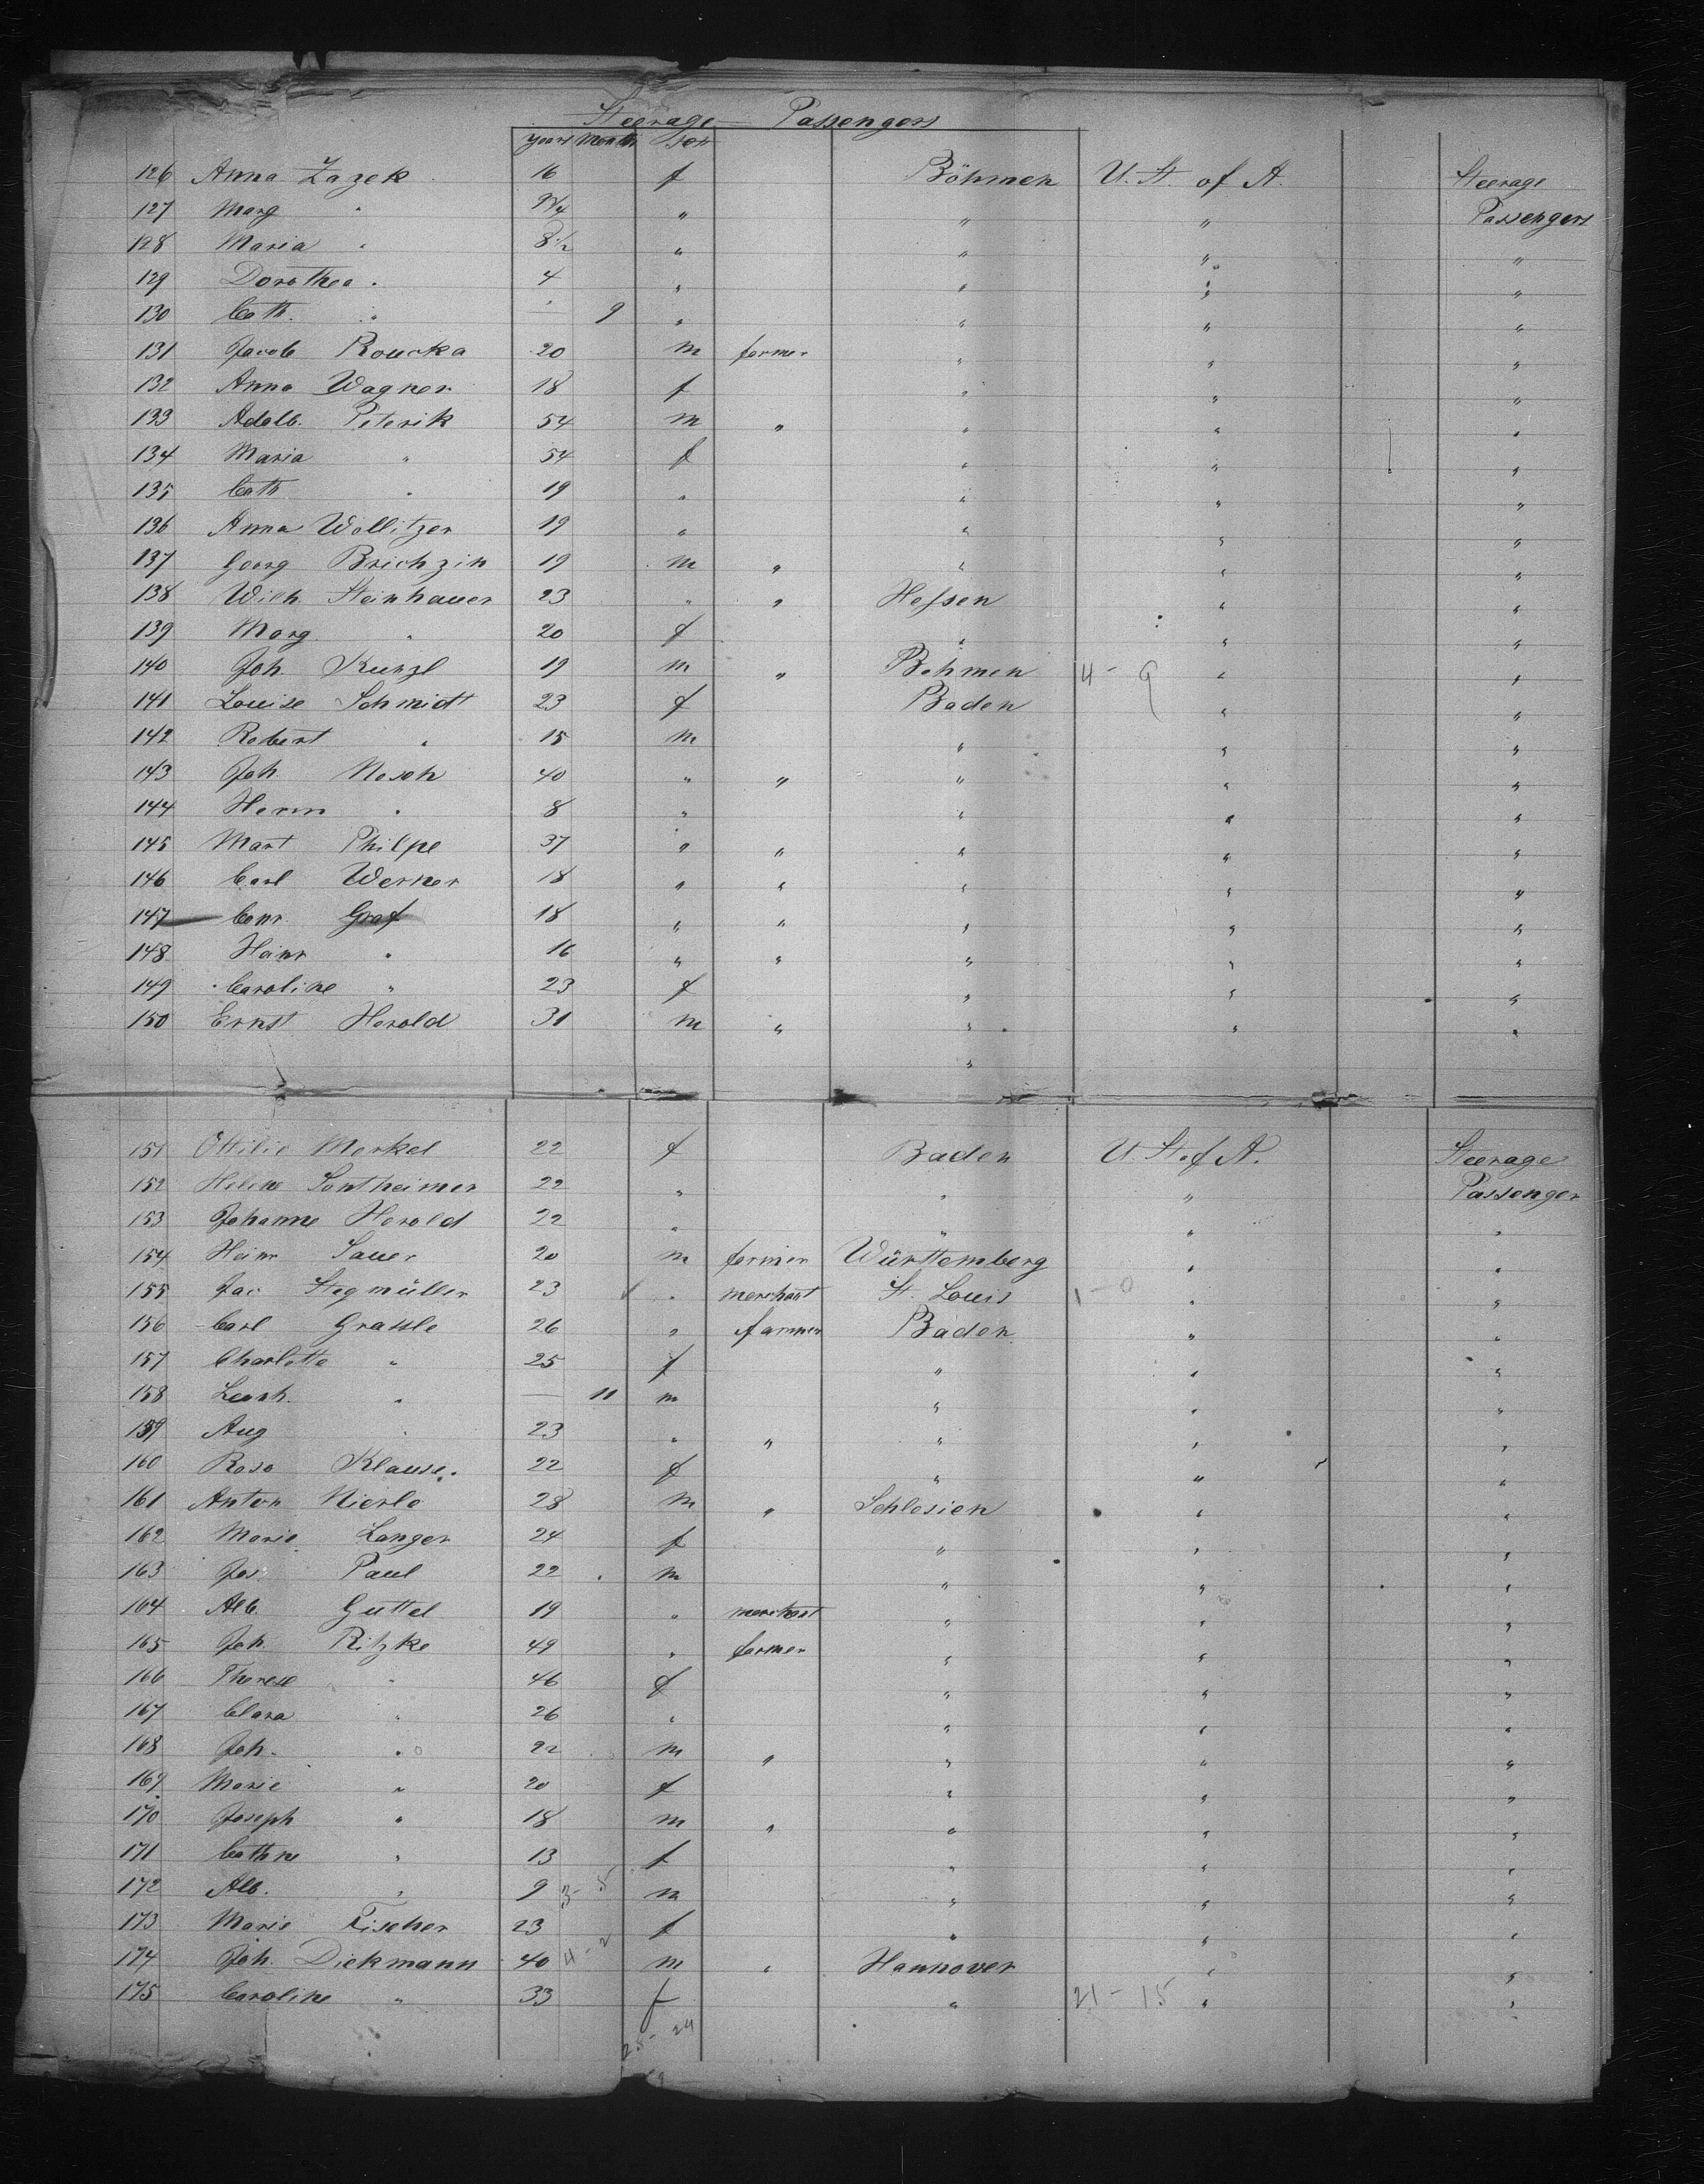 Steerage Passengers
years Month Sex
126 Anna Zazek 16 f Böhmen U. St. of A. Steerage
127 Marg " 9¼ " " " Passengers
128 Maria " 8½ " " " "
129 Dorothea " 4 " " " "
130 Cath. " — 9 " " " "
131 Jacob Roucka 20 m farmer " " "
132 Anna Wagner 18 f " " "
133 Adalb. Peterik 54 m " " " "
134 Maria " 54 f " " "
135 Cath " 19 " " " "
136 Anna Wollitzer 19 " " " "
137 Georg Brichzin 19 m " " " "
138 Wilh. Steinhauer 23 " " Hessen " "
139 Marg. " 20 f " " "
140 Joh. Kunzl 19 m " Bohmen 14 - 9 " "
141 Louise Schmidt 23 f Baden " "
142 Robert " 15 m " " "
143 Joh. Nesch 40 " " " " "
144 Herm " 8 " " " "
145 Mart Philpe 37 " " " " "
146 Carl Werner 18 " " " " "
147 Conr. Graf 18 " " " " "
148 Heinr " 16 " " " " "
149 Caroline " 23 f " " "
150 Ernst Herold 31 m " " " "
"
151 Ottilie Merkel 22 f Baden U. St. of A. Steerage
152 Helene Sontheimer 22 " " " Passenger
153 Johanne Herold 22 " " " "
154 Heinr Sauer 20 m farmer Württemberg " "
155 Jac Stegmüller 23 " merchant St. Louis 1 - 0 " "
156 Carl Grassle 26 " farmer Baden " "
157 Charlotte " 25 f " " "
158 Leonh. " — 11 m " " "
159 Aug " 23 " " " " "
160 Rosa Klause. 22 f " " "
161 Anton Nierle 28 m " Schlesien " "
162 Marie Langer 24 f " " "
163 Jos. Paul 22 m " " "
164 Alb. Guttel 19 " merchant " " "
165 Joh. Ritzke 49 " farmer " " "
166 Therese " 46 f " " "
167 Clara " 26 " " " "
168 Joh. " 22 m " " " "
169 Marie " 20 f " " "
170 Joseph " 18 m " " " "
171 Cathne " 13 f " " "
172 Alb. " 9 3 - 5 m " " "
173 Marie Fischer 23 f " " "
174 Joh. Diekmann 40 4 - 2 m " Hannover " "
175 Caroline " 33 f " 21 - 15 " "
25 - 24